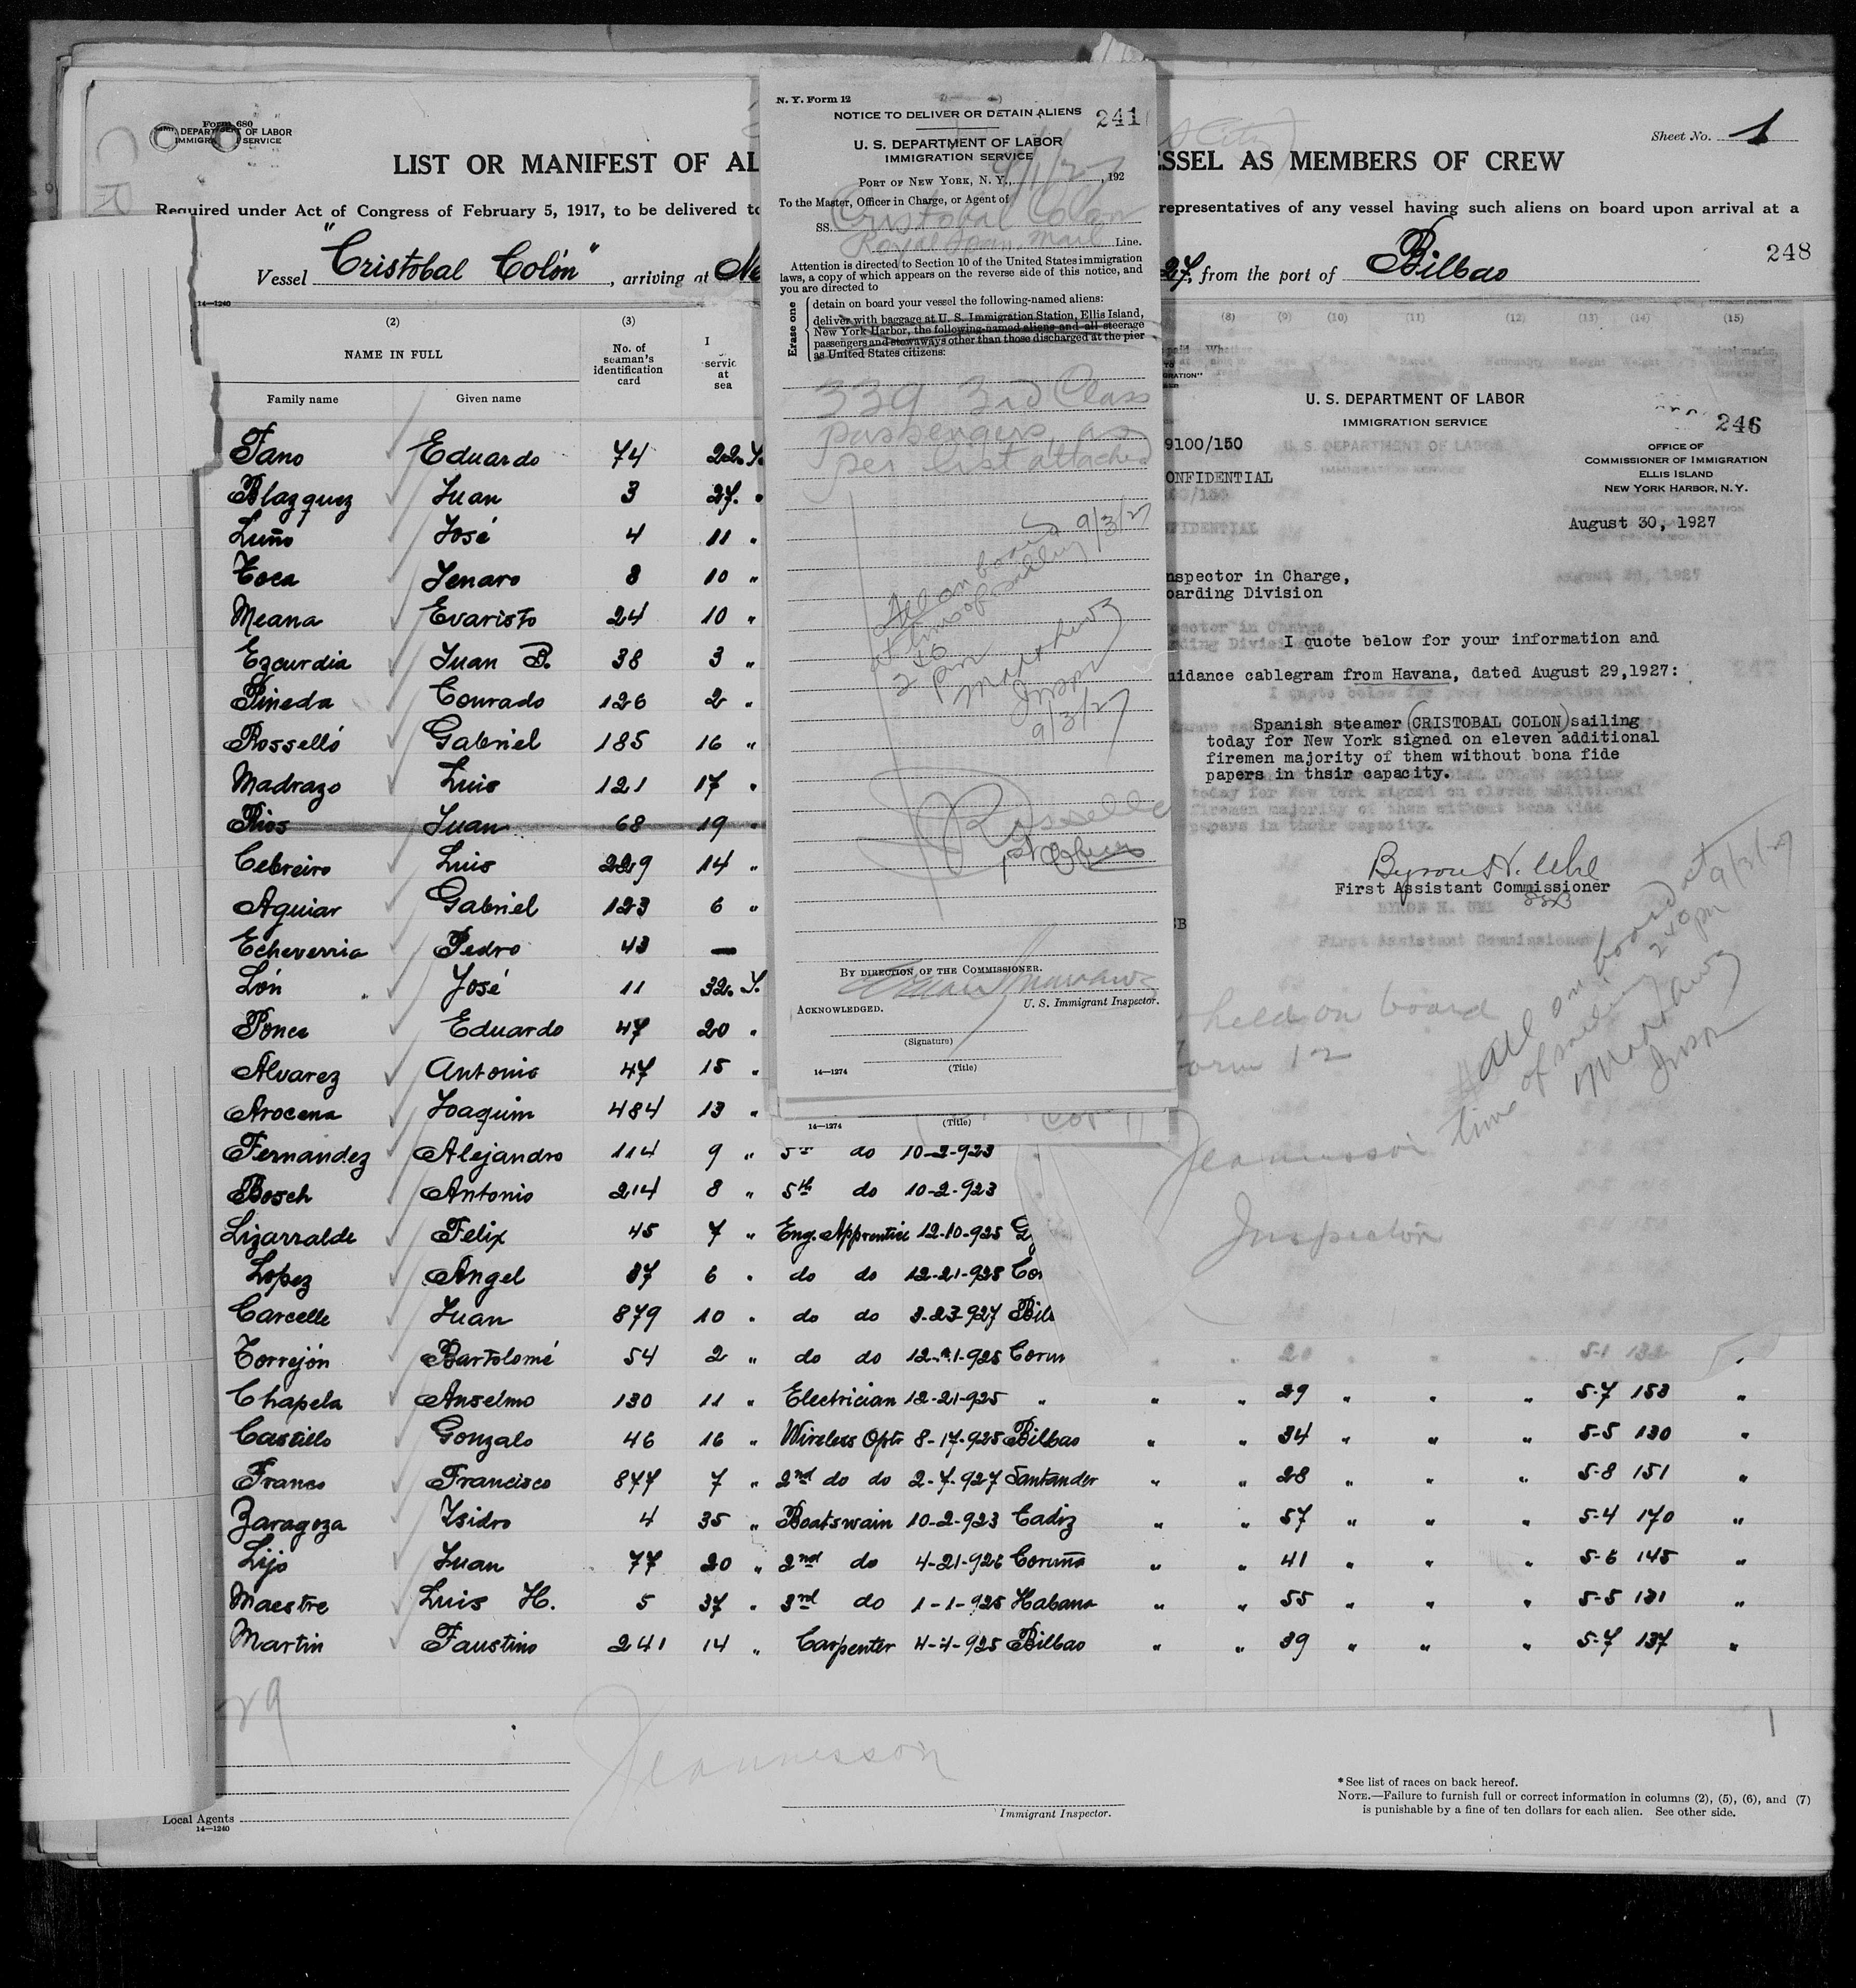 Form 680
DEPARTMENT OF LABOR
IMMIGRA SERVICE
LIST OR MANIFEST OF AL
SSEL AS MEMBERS OF CREW
Sheet No. 1
Required under Act of Congress of February 5, 1917, to be delivered to
representatives of any vessel having such aliens on board upon arrival at a
Vessel "Cristobal Colón", arriving at Ne
27, from the port of Bilbao
248
14—1240
(2) (3)
NAME IN FULL
No. of seaman's identification card
servic at sea
Family name Given name
(8) (9) (10) (11) (12) (13) (14) (15)
Fano Eduardo 74 22. Y.
Blazquez Juan 3 27. "
Luño José 4 11 "
Toca Jenaro 8 10 "
Meana Evaristo 24 10 "
Ezcurdia Juan B. 38 3 "
Pineda Conrado 126 2 "
Rosselló Gabriel 185 16 "
Madrazo Luis 121 17 "
Rios Juan 68 19 "
Cebreiro Luis 229 14 "
Aguiar Gabriel 123 6 "
Echeverria Pedro 43 —
Lón José 11 32. Y.
Ponce Eduardo 47 20 "
Alvarez Antonio 47 15 "
Arocena Joaquim 484 13 "
Fernandez Alejandro 114 9 " 5th do 10-2-923
Bosch Antonio 214 8 " 5th do 10-2-923
Lizarralde Felix 45 7 " Eng. Apprentice 12-10-925
Lopez Angel 37 6 " do do 12-21-925 Cor
Carcelle Juan 879 10 " do do 3-23-927 Bilb
Torrejón Bartolomé 54 2 " do do 12-21-925 Corun 20 5-1 132
Chapela Anselmo 130 11 " Electrician 12-21-925 " " " 29 " " " 5-7 153 "
Castillo Gonzalo 46 16 " Wireless Optr 8-17-925 Bilbao " " 34 " " " 5-5 130 "
Franco Francisco 877 7 " 2nd do do 2-7-927 Santander " " 28 " " " 5-8 151 "
Zaragoza Isidro 4 35 " Boatswain 10-2-923 Cadiz " " 57 " " " 5-4 170 "
Lijo Juan 77 20 " 2nd do 4-21-926 Coruña " " 41 " " " 5-6 145 "
Maestre Luis H. 5 37 " 3rd do 1-1-925 Habana " " 55 " " " 5-5 131 "
Martin Faustino 241 14 " Carpenter 4-4-925 Bilbao " " 39 " " " 5-7 137 "
29
Jeannisson
Immigrant Inspector.
Local Agents
14—1240
* See list of races on back hereof.
NOTE.—Failure to furnish full or correct information in columns (2), (5), (6), and (7)
is punishable by a fine of ten dollars for each alien. See other side.
N. Y. Form 12
NOTICE TO DELIVER OR DETAIN ALIENS
241
U. S. DEPARTMENT OF LABOR
IMMIGRATION SERVICE
PORT OF NEW YORK, N. Y., 9/1/27, 192
To the Master, Officer in Charge, or Agent of
SS. Cristobal Colon
Royal Span. Mail Line.
Attention is directed to Section 10 of the United States immigration
laws, a copy of which appears on the reverse side of this notice, and
you are directed to
Erase one
detain on board your vessel the following-named aliens:
deliver with baggage at U. S. Immigration Station, Ellis Island,
New York Harbor, the following-named aliens and all steerage
passengers and stowaways other than those discharged at the pier
as United States citizens:
339 3rd Class
passengers, as
per list attached
All on board 9/3/27
at time of sailing
2 40 Pm
Matthews
Inspr
9/3/27
BY DIRECTION OF THE COMMISSIONER.
U. S. Immigrant Inspector.
ACKNOWLEDGED.
(Signature)
(Title)
14—1274
14—1274 (Title)
U. S. DEPARTMENT OF LABOR
IMMIGRATION SERVICE
246
9100/150
OFFICE OF
COMMISSIONER OF IMMIGRATION
ELLIS ISLAND
NEW YORK HARBOR, N. Y.
ONFIDENTIAL
August 30, 1927
nspector in Charge,
oarding Division
I quote below for your information and
uidance cablegram from Havana, dated August 29,1927:
Spanish steamer (CRISTOBAL COLON) sailing
today for New York signed on eleven additional
firemen majority of them without bona fide
papers in thsir capacity.
Byron H. Uhl
First Assistant Commissioner
held on board
orm 12
All on board at
time of sailing 2 40 pm 9/3/27
Matthews
Inspr
Jeannisson
Inspector